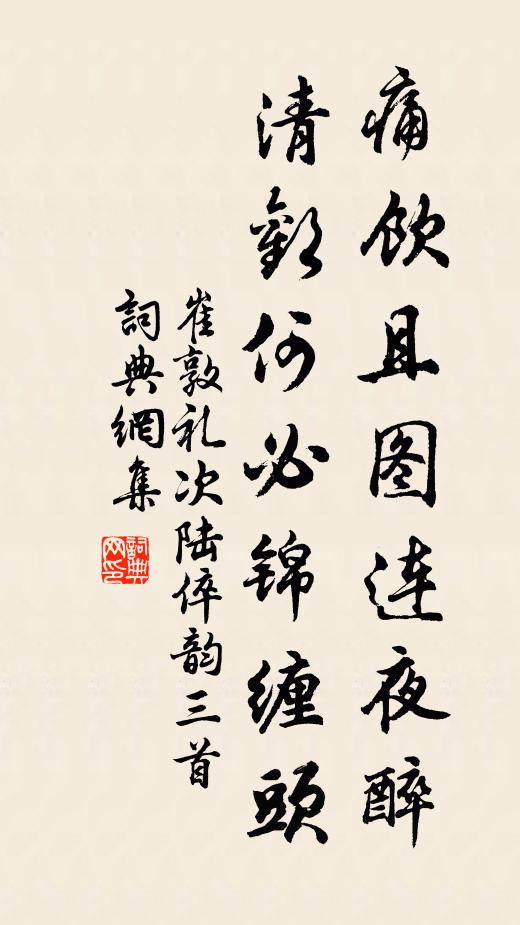 痛飲且图連夜醉
清歡何必锦缠頭
崔敦礼次陆倅韵三首
詞典網集
詞典网印